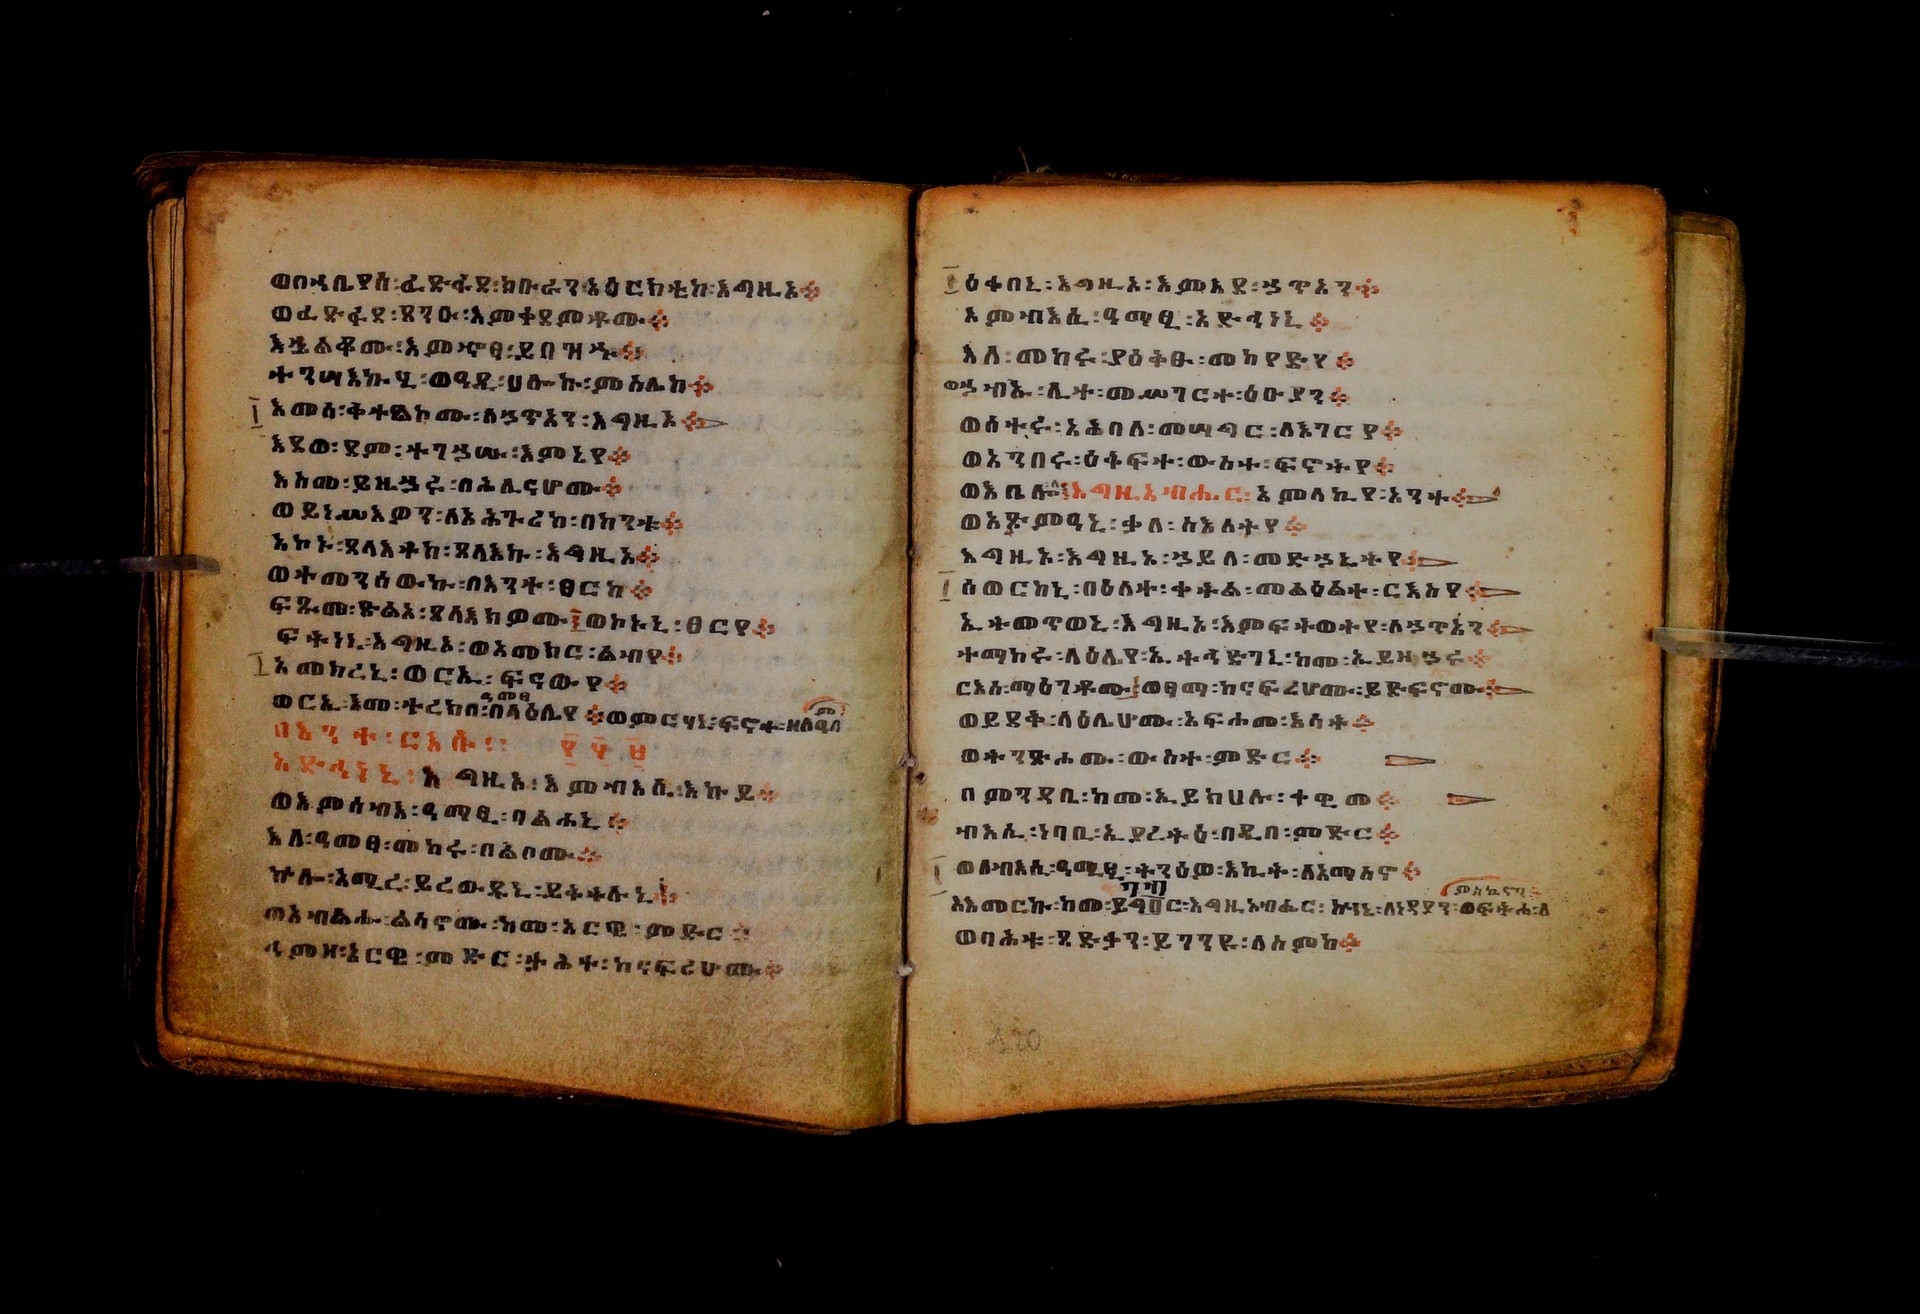 ወበኀቤየሰ፡ፈድፋደ፡ክቡራን፡አዕርክቲከ፡እግዚኦ።
ወፈድፋደ፡ጸንዑ፡እምቀደምቶሙ።
እኄልቆሙ፡እምኆፃ፡ይበዝኁ።
ተንሣእኩሂ፡ወዓዲ፡ሀሎኩ፡ምስሌከ።
እመሰ፡ቀተልኮሙ፡ለኃጥአን፡እግዚኦ።
እደወ፡ደም፡ተገኃሡ፡እምኔየ።
እስመ፡ይዜኃሩ፡በሕሊናሆሙ።
ወይነሥእዎን፡ለአሕጉሪከ፡በከንቱ።
አኮኑ፡ጸላእቶከ፡ጸላእኩ፡እግዚኦ።
ወተመንሰውኩ፡በእንተ፡ፀርከ።
ፍጹመ፡ጽልአ፡ጸላእክዎሙ፡ወኮኑኒ፡ፀርየ።
ፍትነኒ፡እግዚኦ፡ወአመክር፡ልብየ።
አመክረኒ፡ወርኢ፡ፍናውየ።
ወርኢ፡እመ፡ተረክበ፡ዓመፃ፡በላዕሌየ።ወምርሃኒ፡ፍኖተ፡ዘለዓለም
በእንተ፡ርእሱ፡
አድኅነኒ፡እግዚኦ፡እምብእሲ፡እኩይ።
ወእምሰብእ፡ዓማፂ፡ባልሐኒ።
እለ፡ዓመፃ፡መከሩ፡በልቦሙ።
ኵሎ፡አሚረ፡ይረውዱኒ፡ይቅተሉኒ።
ወአብልሑ፡ልሳኖሙ፡ከመ፡አርዌ፡ምድር።
ሕምዘ፡አርዌ፡ምድር፡ታሕተ፡ከናፍሪሆሙ።
ዕቀበኒ፡እግዚኦ፡እምእደ፡ኃጥአን።
እምብእሲ፡ዓማፂ፡አድኅነኒ።
እለ፡መከሩ፡ያዕቅፁ፡መከየድየ።
ወኃብኡ፡ሊተ፡መሥገርተ፡ዕቡያን።
ወሰተሩ፡አሕባለ፡መሣግር፡ለእገርየ።
ወአንበሩ፡ዕቅፍተ፡ውስተ፡ፍኖትየ።
ወእቤሎ፡ለእግዚአብሔር፡አምላኪየ፡አንተ።
ወአጽምዓኒ፡ቃለ፡ስእለትየ።
እግዚኦ፡እግዚኦ፡ኃይለ፡መድኃኒትየ።
ሰወርከኒ፡በዕለተ፡ቀትል፡መልዕልተ፡ርእስየ።
ኢትመጥወኒ፡እግዚኦ፡እምፍትወትየ፡ለኃጥአን።
ተማከሩ፡ላዕሌየ፡ኢትኅድገኒ፡ከመ፡ኢይዘኃሩ።
ርእሰ፡ማዕገቶሙ፡ወፃማ፡ከናፍሪሆሙ፡ይድፍኖሙ።
ወይደቅ፡ላዕሌሆሙ፡አፍሐመ፡እሳት።
ወትንጽሖሙ፡ውስተ፡ምድር።
በምንዳቤ፡ከመ፡ኢይክሀሉ፡ተቀዊመ።
ብእሲ፡ነባቢ፡ኢያረትዕ፡በዲበ፡ምድር።
ወለብእሲ፡ዓማፂ፡ተንዕዎ፡እኪት፡ለአማስኖ።
አእመርኩ፡ከመ፡ይገብር፡እግዚአብሔር፡ኵነኔ፡ለነዳያን፡ወፍትሐ፡ለምስኪናን
ወባሕቱ፡ጻድቃን፡ይገንዩ፡ለስምከ።
120